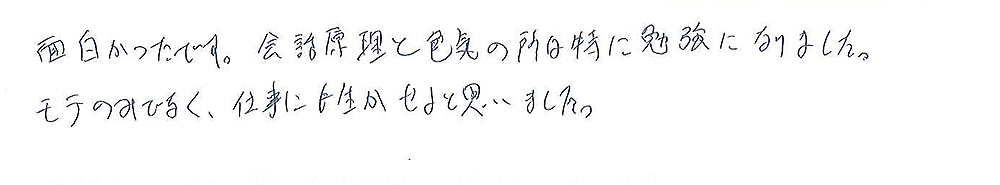 面白かったです。会話原理と色気の所は特に勉強になりました。
モテのみでなく、仕事にも生かせると思いました。